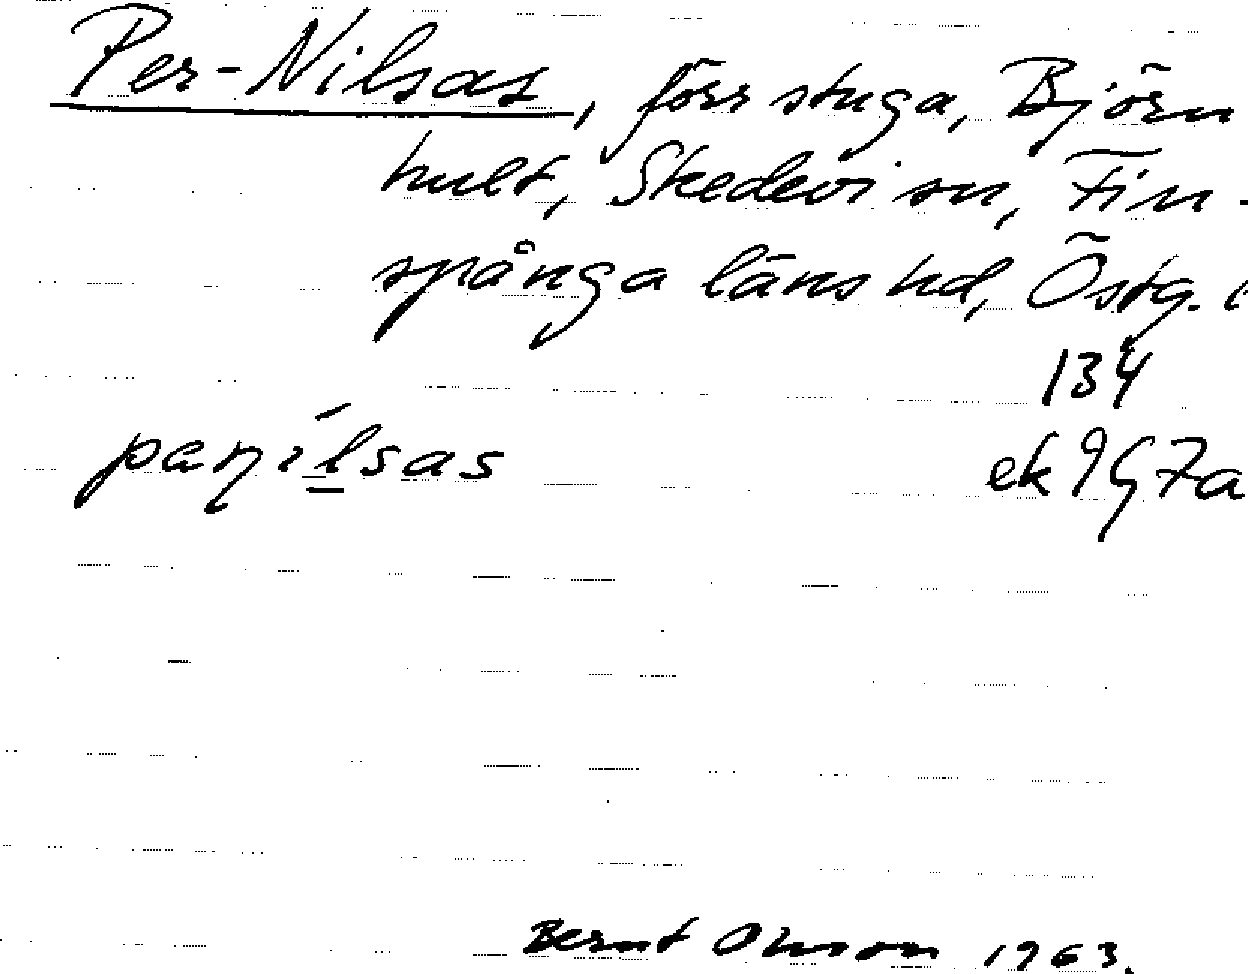 Per-Nilsas, förr stuga, Björn
hult, Skedevi sn, Fin-
spånga läns hd, Östg. l
134
paṇílsas
ek 9G7a
Bernt Olsson 1963.